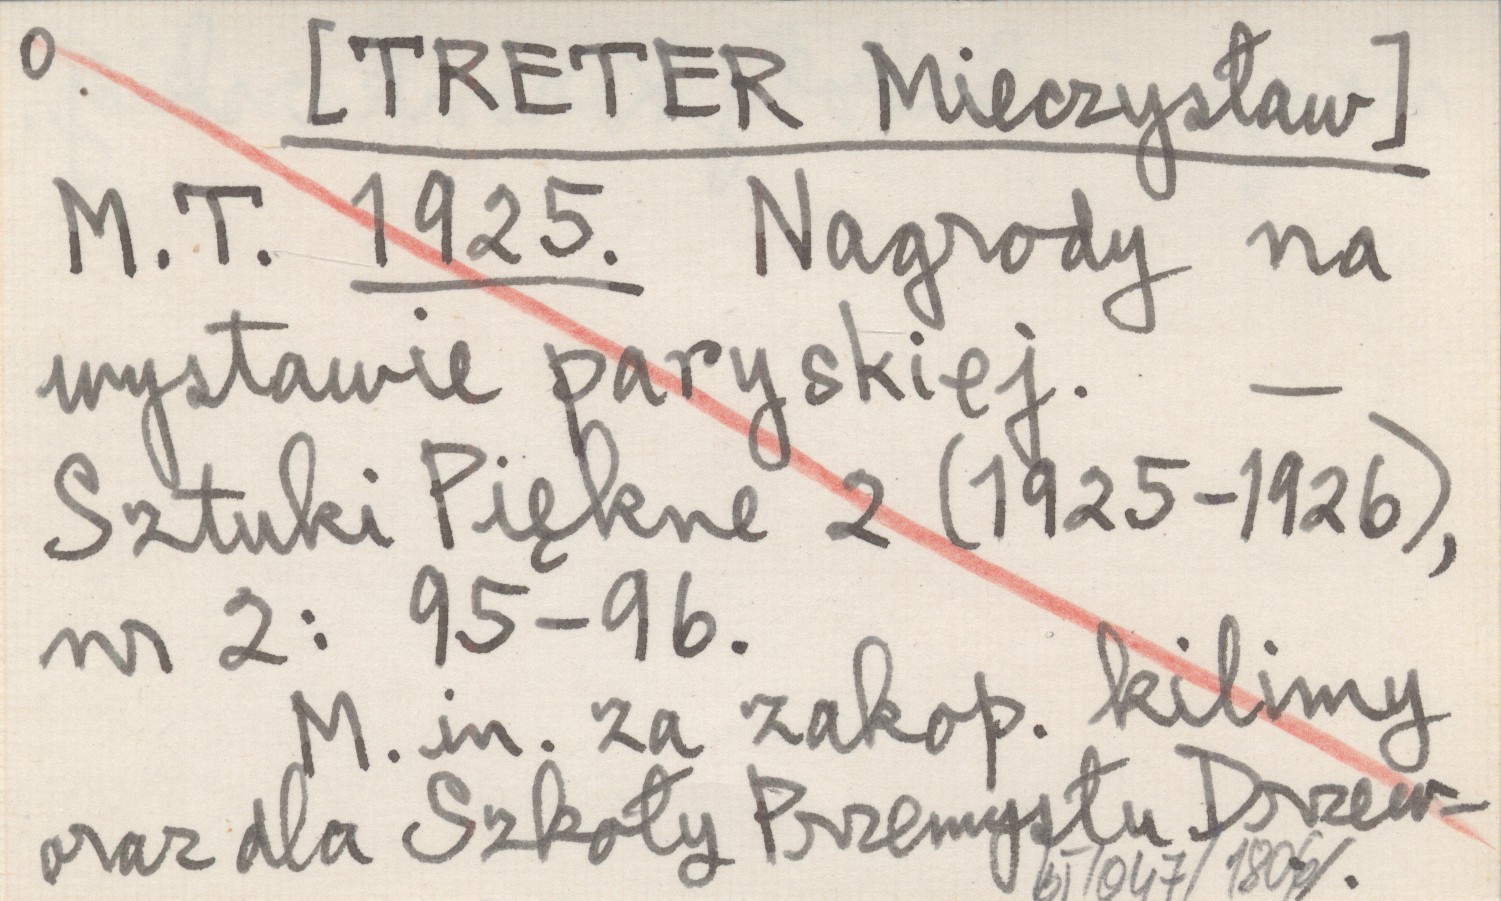 0 [TRETER Mieczysław]
M.T. 1925. Nagrody na
wystawie paryskiej. —
Sztuki Piękne 2 (1925-1926),
nr 2: 95-96.
M. in. za zakop. kilimy
oraz dla Szkoły Przemysłu Drzew-